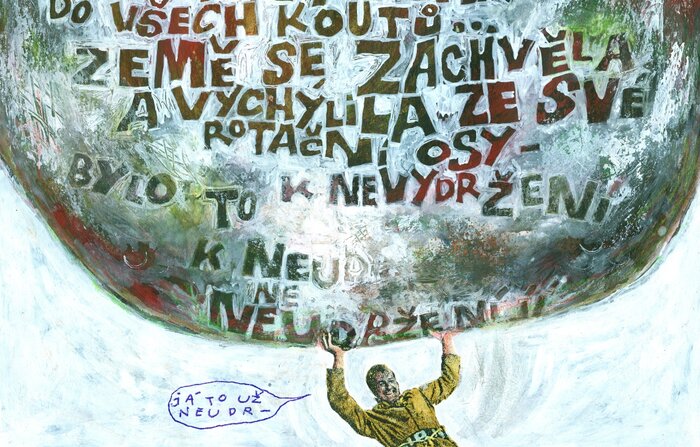 DO VŠECH KOUTŮ...
ZEMĚ SE ZACHVĚLA
A VYCHÝLILA ZE SVÉ
ROTAČNÍ OSY-
BYLO TO K NEVYDRŽENÍ
K NEUD
NE
NEUDRŽENÍ
JÁ TO UŽ
NEUDR-